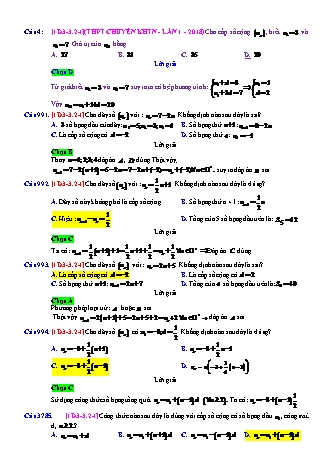 Câu 4: [1D3-3.2-1] (THPT CHUYÊN KHTN - LẦN 1 - 2018) Cho cấp số cộng (uₙ), biết u₂ = 3 và
u₄ = 7. Giá trị của u₁₅ bằng
A. 27 B. 31 C. 35 D. 29
Lời giải
Chọn D
Từ giả thiết u₂ = 3 và u₄ = 7 suy ra ta có hệ phương trình: { u₁ + d = 3 ; u₁ + 3d = 7 ⇒ { u₁ = 1 ; d = 2
Vậy u₁₅ = u₁ + 14d = 29
Câu 991. [1D3-3.2-1] Cho dãy số (uₙ) với : uₙ = 7 - 2n. Khẳng định nào sau đây là sai?
A. 3 số hạng đầu của dãy: u₁ = 5; u₂ = 3; u₃ = 1 B. Số hạng thứ n+1: uₙ₊₁ = 8 - 2n
C. Là cấp số cộng có d = -2 D. Số hạng thứ 4: u₄ = -1
Lời giải
Chọn B
uₙ₊₁ = 7 - 2(n+1) = 5 - 2n
Câu 992. [1D3-3.2-1] Cho dãy số (uₙ) với : uₙ = 1/2 n + 1. Khẳng định nào sau đây là đúng?
A. Dãy số này không phải là cấp số cộng B. Số hạng thứ n + 1:
C. Hiệu : D. Tổng của 5 số hạng đầu tiên là: S₅ = 12
Lời giải
Chọn C
Câu 993. [1D3-3.2-1] Cho dãy số (uₙ) với : uₙ = 2n + 5. Khẳng định nào sau đây là sai?
A. Là cấp số cộng có d = -2 B. Là cấp số cộng có d = 2
C. Số hạng thứ n+1: uₙ₊₁ = 2n + 7 D. Tổng của 4 số hạng đầu tiên là: S₄ = 40
Lời giải
Chọn A
Câu 994. [1D3-3.2-1] Cho dãy số (uₙ) có: u₁ = -3; d = 1/2. Khẳng định nào sau đây là đúng?
A. uₙ = -3 + 1/2 (n+1) B. uₙ = -3 + 1/2 n - 1
C. uₙ = -3 + 1/2 (n-1) D.
Lời giải
Chọn C
Sử dụng công thức số hạng tổng quát uₙ = u₁ + (n-1)d (∀n ≥ 2). Ta có: uₙ = -3 + (n-1) 1/2
Câu 3785. [1D3-3.2-1] Công thức nào sau đây là đúng với cấp số cộng có số hạng đầu u₁, công sai
d, n ≥ 2?
A. uₙ = u₁ + d B. uₙ = u₁ + (n+1)d C. uₙ = u₁ - (n-1)d D. uₙ = u₁ + (n-1)d